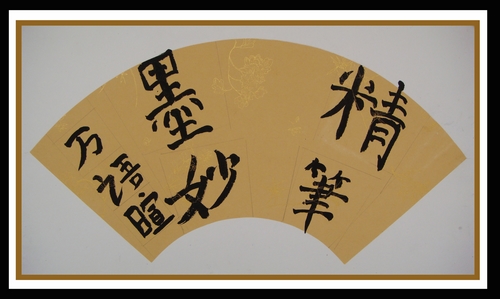 精筆
墨妙
万语暄